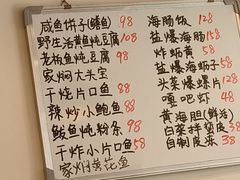 咸鱼饼子(鳝鱼) 98
野生活黄鱼炖豆腐 98
老板鱼炖豆腐 108
家焖大头宝
干烧片口鱼 88
辣炒小鲍鱼 88
鲅鱼炖粉条 98
干炸小片口鱼 58
家焖黄花鱼
海肠饭 128
盐爆海肠 158
炸蛎黄 58
盐爆海蛎子 58
头菜爆螺片 128
嘎吧虾 48
黄海胆(鲜活)
白菜拌蜇皮 38
自制皮冻 38